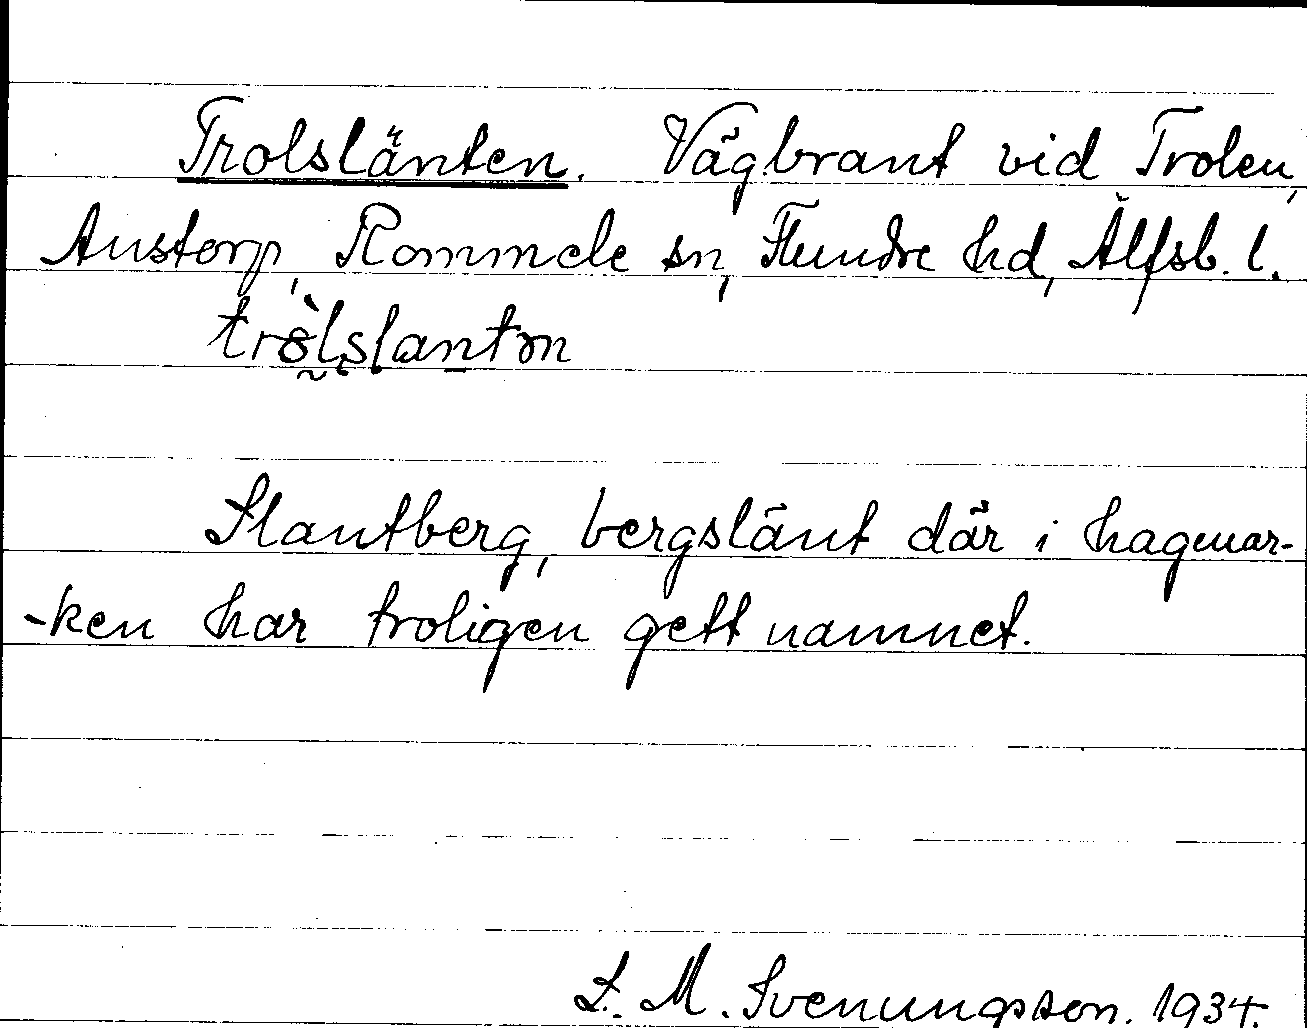 Trolslänten. Vägbrant vid Trolen,
Anstorp, Rommele sn, Flundre hd, Älfsb. l.
tròlslantn
Slantberg, bergslänt där i hagmar-
-ken har troligen gett namnet.
L. M. Svenungsson. 1934.